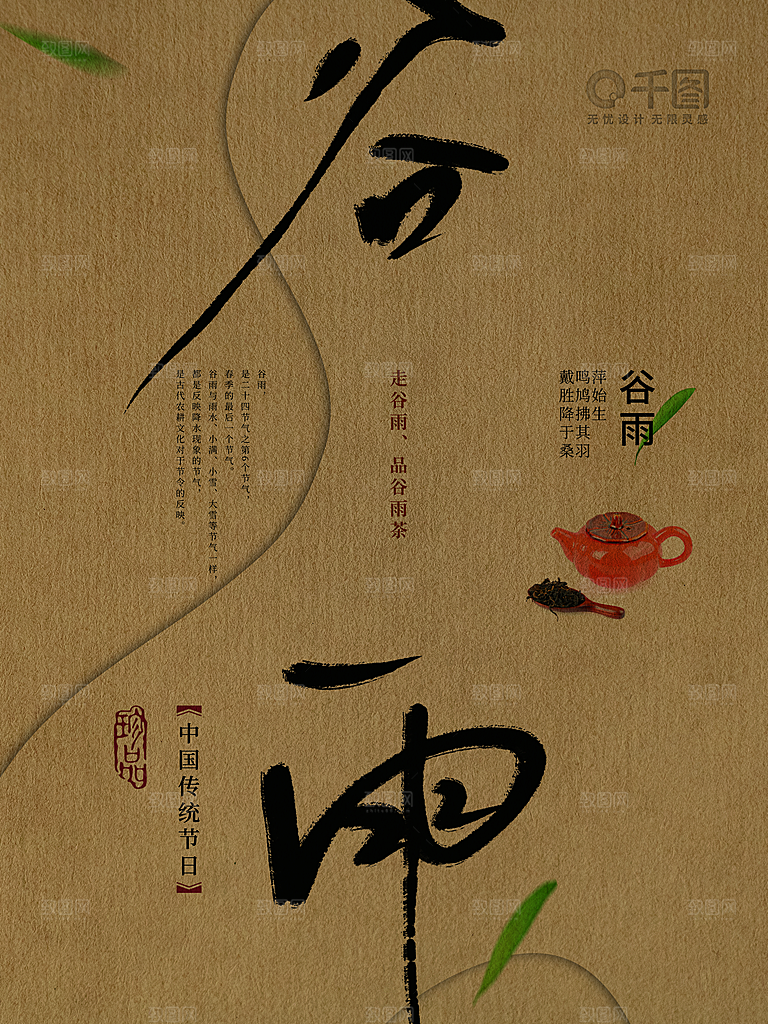 谷雨
千图
无忧设计 无限灵感
谷雨
萍始生
鸣鸠拂其羽
戴胜降于桑
走谷雨、品谷雨茶
谷雨，
是二十四节气之第6个节气，
春季的最后一个节气。
谷雨与雨水、小满、小雪、大雪等节气一样，
都是反映降水现象的节气，
是古代农耕文化对于节令的反映。
珍品
【中国传统节日】
致图网